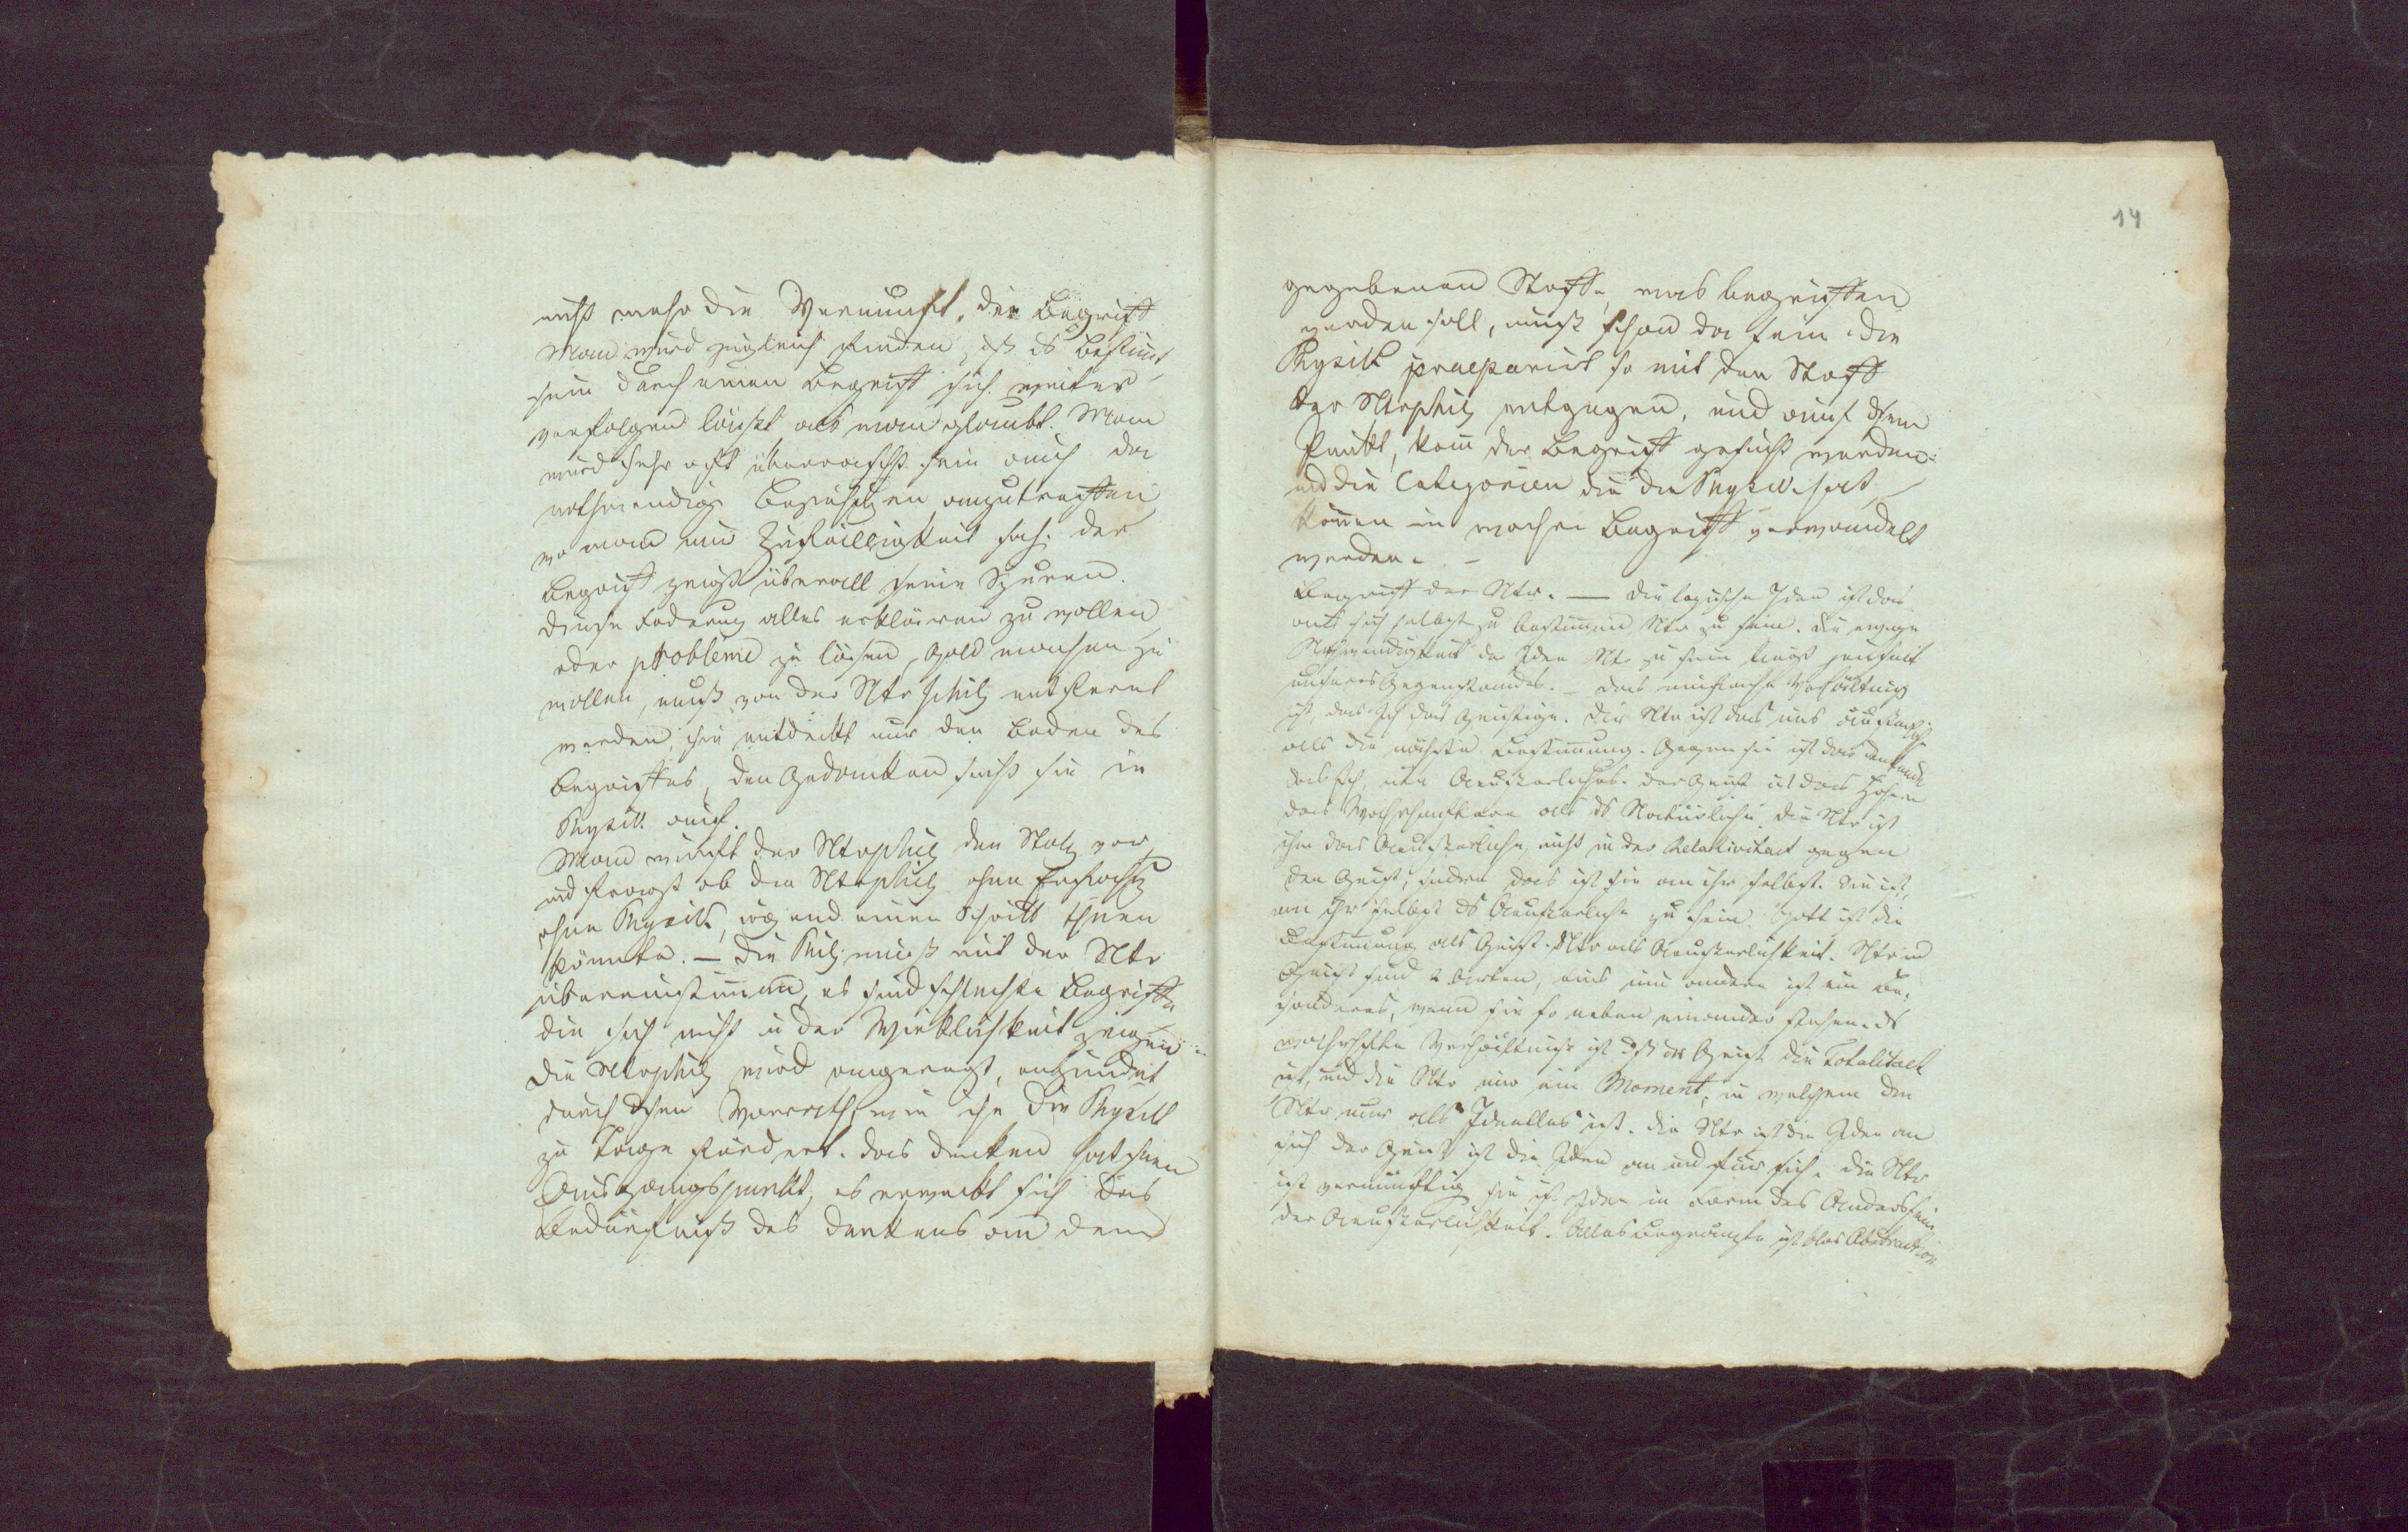 nicht mehr die Vernunft, der Begriff
Man wird zugleich finden, dß ds Bestimt
sein durch einen Begriff sich weiter
verfolgen läußt als man glaubt. Man
wird sehr oft überrascht sein auch da
nothwendige Beziehungen anzutreffen
wo man nur Zufälligkeit sah. der
Begriff zeigt überall seine Spuren.
Diese Foderung alles erklären zu wollen
oder probleme zu lösen, Gold machen zu
wollen, muß von der Ntrphilz entfernt
werden, sie entdeckt nur den Boden des
Begriffes, den Gedanken sucht sie in
Physik auf.
Man wirft der Ntrphilz den Stolz vor
und fragt ob die Ntrphilz ohne Erfahrg
ohne Physik, irgend einen Schritt thuen
könnte. — Die Philz muß mit der Ntr
übereinstimmen, es sind schlechte Begriffe
die sich nicht in der Wirklichkeit zeigen
Die Ntrphilz wird angeregt, entzündet
durch dsen Vorrath wie ihn die Physik
zu Tage fördert. das denken hat seinen
Ausgangspunkt, es erweckt sich das
Bedürfniß des denkens an dem
14
gegebenen Stoffe, was begriffen
werden soll, muß schon da sein. die
Physik praeparirt so mit den Stoff
der Ntrphilz entgegen, und auf dsem
Punkt, kann der Begriff gesucht werden:
und die Categorien die die Physik hat
können in wahre Begriff verwandelt
werden. —
Begriff der Ntr. — die logische Idee ist das
sich selbst zu bestimmen, Ntr zu sein. die ewige
Nothwendigkeit der Idee Ntr zu sein liegt jenseit
unseres Gegenstandes. — das einfache Verhältniß
ist, das Ich das Geistige. die Ntr ist das uns äußerliche
als die nächste Bestimmung. Gegen sie ist das denkende
das Ich, ein Aeußerliches. der Geist ist das Höhere
das Wahrhaftere als ds Natürliche. die Ntr ist
ihm das Aeußerliche, nicht in der Relativitaet gegen
den Geist, sondern das ist sie an ihr selbst. Sie ist,
an ihr selbst ds Aeußerliche zu sein. Gott ist die
Bestimmung als Geist. Ntr als Aeußerlichkeit. Ntr und
Geist sind 2 Arten, eins wie andere ist ein be-
sonderes, wenn sie so neben einander stehen. ds
wahrhafte Verhältniß ist dß der Geist die Totalitaet
ist, und die Ntr nur ein Moment, in welchem die
Ntr nur als Ideelles ist. die Ntr ist die Idee an
sich der Geist ist die Idee an und für sich. die Ntr
ist vernünftig sie ist Idee in Form des Andersseins
der Aeußerlichkeit. Alles Begrenzte ist blos Abstraction